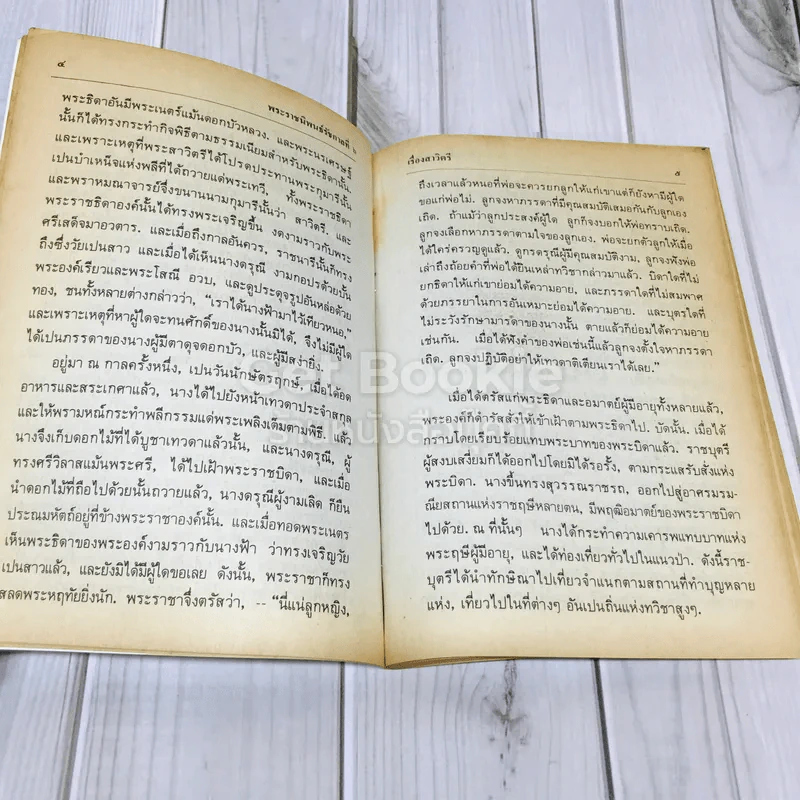 ๔
พระราชนิพนธ์รัชกาลที่ ๖
พระธิดาอันมีพระเนตร์แม้นดอกบัวหลวง. และพระนรเศรษฐ์
นั้นก็ได้ทรงกระทำกิจพิธีตามธรรมเนียมสำหรับพระธิดานั้น.
และเพราะเหตุที่พระสาวิตรีได้โปรดประทานพระกุมารีนั้น
เปนบำเหน็จแห่งพลีที่ได้ถวายแด่พระเทวี, ทั้งพระราชธิดา
และพราหมณาจารย์จึ่งขนานนามกุมารีนั้นว่า สาวิตรี. และ
พระราชธิดาองค์นั้นได้ทรงพระเจริญขึ้น งดงามราวกับพระ
ศรีเสด็จมาอวตาร. และเมื่อถึงกาลอันควร, ราชนารีนั้นก็ทรง
ถึงซึ่งวัยเปนสาว และเมื่อได้เห็นนางดรุณี งามกอปรด้วยบั้น
พระองค์เรียวและพระโสณี อวบ, และดูประดุจรูปอันหล่อด้วย
ทอง, ชนทั้งหลายต่างกล่าวว่า, “เราได้นางฟ้ามาไว้เทียวหนอ.”
และเพราะเหตุที่หาผู้ใดจะทนศักดิ์ของนางนั้นมิได้, จึ่งไม่มีผู้ใด
ได้เปนภรรดาของนางผู้มีตาดุจดอกบัว, และผู้มีสง่ายิ่ง.
อยู่มา ณ กาลครั้งหนึ่ง, เปนวันนักษัตรฤกษ์, เมื่อได้อด
อาหารและสระเกศาแล้ว, นางได้ไปยังหน้าเทวดาประจำสกุล
และให้พราหมณ์กระทำพลีกรรมแด่พระเพลิงเต็มตามพิธี. แล้ว
นางจึ่งเก็บดอกไม้ที่ได้บูชาเทวดาแล้วนั้น, และนางดรุณี, ผู้
ทรงศรีวิลาสแม้นพระศรี, ได้ไปเฝ้าพระราชบิดา, และเมื่อ
นำดอกไม้ที่ถือไปด้วยนั้นถวายแล้ว, นางดรุณีผู้งามเลิด ก็ยืน
ประณมหัตถ์อยู่ที่ข้างพระราชาองค์นั้น. และเมื่อทอดพระเนตร
เห็นพระธิดาของพระองค์งามราวกับนางฟ้า ว่าทรงเจริญวัย
เปนสาวแล้ว, และยังมิได้มีผู้ใดขอเลย ดังนั้น, พระราชาก็ทรง
สลดพระหฤทัยยิ่งนัก. พระราชาจึ่งตรัสว่า, -- “นี่แน่ลูกหญิง,
เรื่องสาวิตรี
๕
ถึงเวลาแล้วหนอที่พ่อจะควรยกลูกให้แก่เขาแต่ก็ยังหามีผู้ใด
ขอแก่พ่อไม่. ลูกจงหาภรรดาที่มีคุณสมบัติเสมอกันกับลูกเอง
เถิด. ถ้าแม้ว่าลูกประสงค์ผู้ใด ลูกก็จงบอกให้พ่อทราบเถิด.
ลูกจงเลือกหาภรรดาตามใจของลูกเอง. พ่อจะยกตัวลูกให้เมื่อ
ได้ใคร่ครวญดูแล้ว. ดูกรดรุณีผู้มีคุณสมบัติงาม, ลูกจงฟังพ่อ
เล่าถึงถ้อยคำที่พ่อได้ยินเหล่าทวิชากล่าวมาแล้ว. บิดาใดที่ไม่
ยกธิดาให้แก่เขาย่อมได้ความอาย. และภรรดาใดที่ไม่สมพาศ
ด้วยภรรยาในการอันเหมาะย่อมได้ความอาย. และบุตรใดที่
ไม่ระวังรักษามารดาของนางนั้น ตายแล้วก็ย่อมได้ความอาย
เช่นกัน. เมื่อได้ฟังคำของพ่อเช่นนี้แล้วลูกจงตั้งใจหาภรรดา
เถิด. ลูกจงปฏิบัติอย่าให้เทวดาติเตียนเราได้เลย.”
เมื่อได้ตรัสแก่พระธิดาและอมาตย์ผู้มีอายุทั้งหลายแล้ว,
พระองค์ก็ดำรัสสั่งให้เข้าเฝ้าตามพระธิดาไป. บัดนั้น. เมื่อได้
กราบโดยเรียบร้อยแทบพระบาทของพระบิดาแล้ว, ราชบุตรี
ผู้สงบเสงี่ยมก็ได้ออกไปโดยมิได้รอรั้ง, ตามกระแสรับสั่งแห่ง
พระบิดา. นางขึ้นทรงสุวรรณราชรถ, ออกไปสู่อาศรมรม-
ณียสถานแห่งราชฤษีหลายตน, มีพฤฒิอมาตย์ของพระราชบิดา
ไปด้วย. ณ ที่นั้นๆ นางได้กระทำความเคารพแทบบาทแห่ง
พระฤษีผู้มีอายุ, และได้ท่องเที่ยวทั่วไปในแนวป่า. ดังนี้ราช-
บุตรีได้นำทักษิณาไปเที่ยวจำแนกตามสถานที่ทำบุญหลาย
แห่ง, เที่ยวไปในที่ต่างๆ อันเปนถิ่นแห่งทวิชาสูงๆ.
Get Bookie